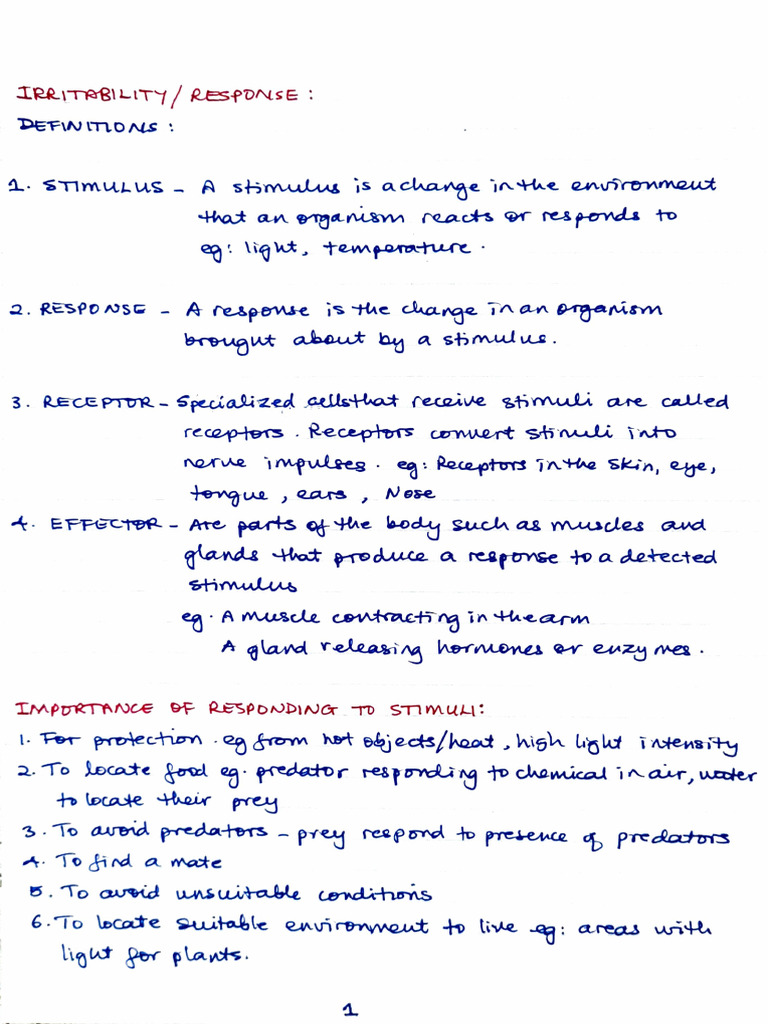 IRRITABILITY/RESPONSE:
DEFINITIONS:
1. STIMULUS - A stimulus is a change in the environment
that an organism reacts or responds to
eg: light, temperature.
2. RESPONSE - A response is the change in an organism
brought about by a stimulus.
3. RECEPTOR - Specialized cells that receive stimuli are called
receptors. Receptors convert stimuli into
nerve impulses. eg: Receptors in the skin, eye,
tongue, ears, Nose
4. EFFECTOR - Are parts of the body such as muscles and
glands that produce a response to a detected
stimulus
eg. A muscle contracting in the arm
A gland releasing hormones or enzymes.
IMPORTANCE OF RESPONDING TO STIMULI:
1. For protection. eg from hot objects/heat, high light intensity
2. To locate food eg. predator responding to chemical in air, water
to locate their prey
3. To avoid predators - prey respond to presence of predators
4. To find a mate
5. To avoid unsuitable conditions
6. To locate suitable environment to live eg: areas with
light for plants.
1